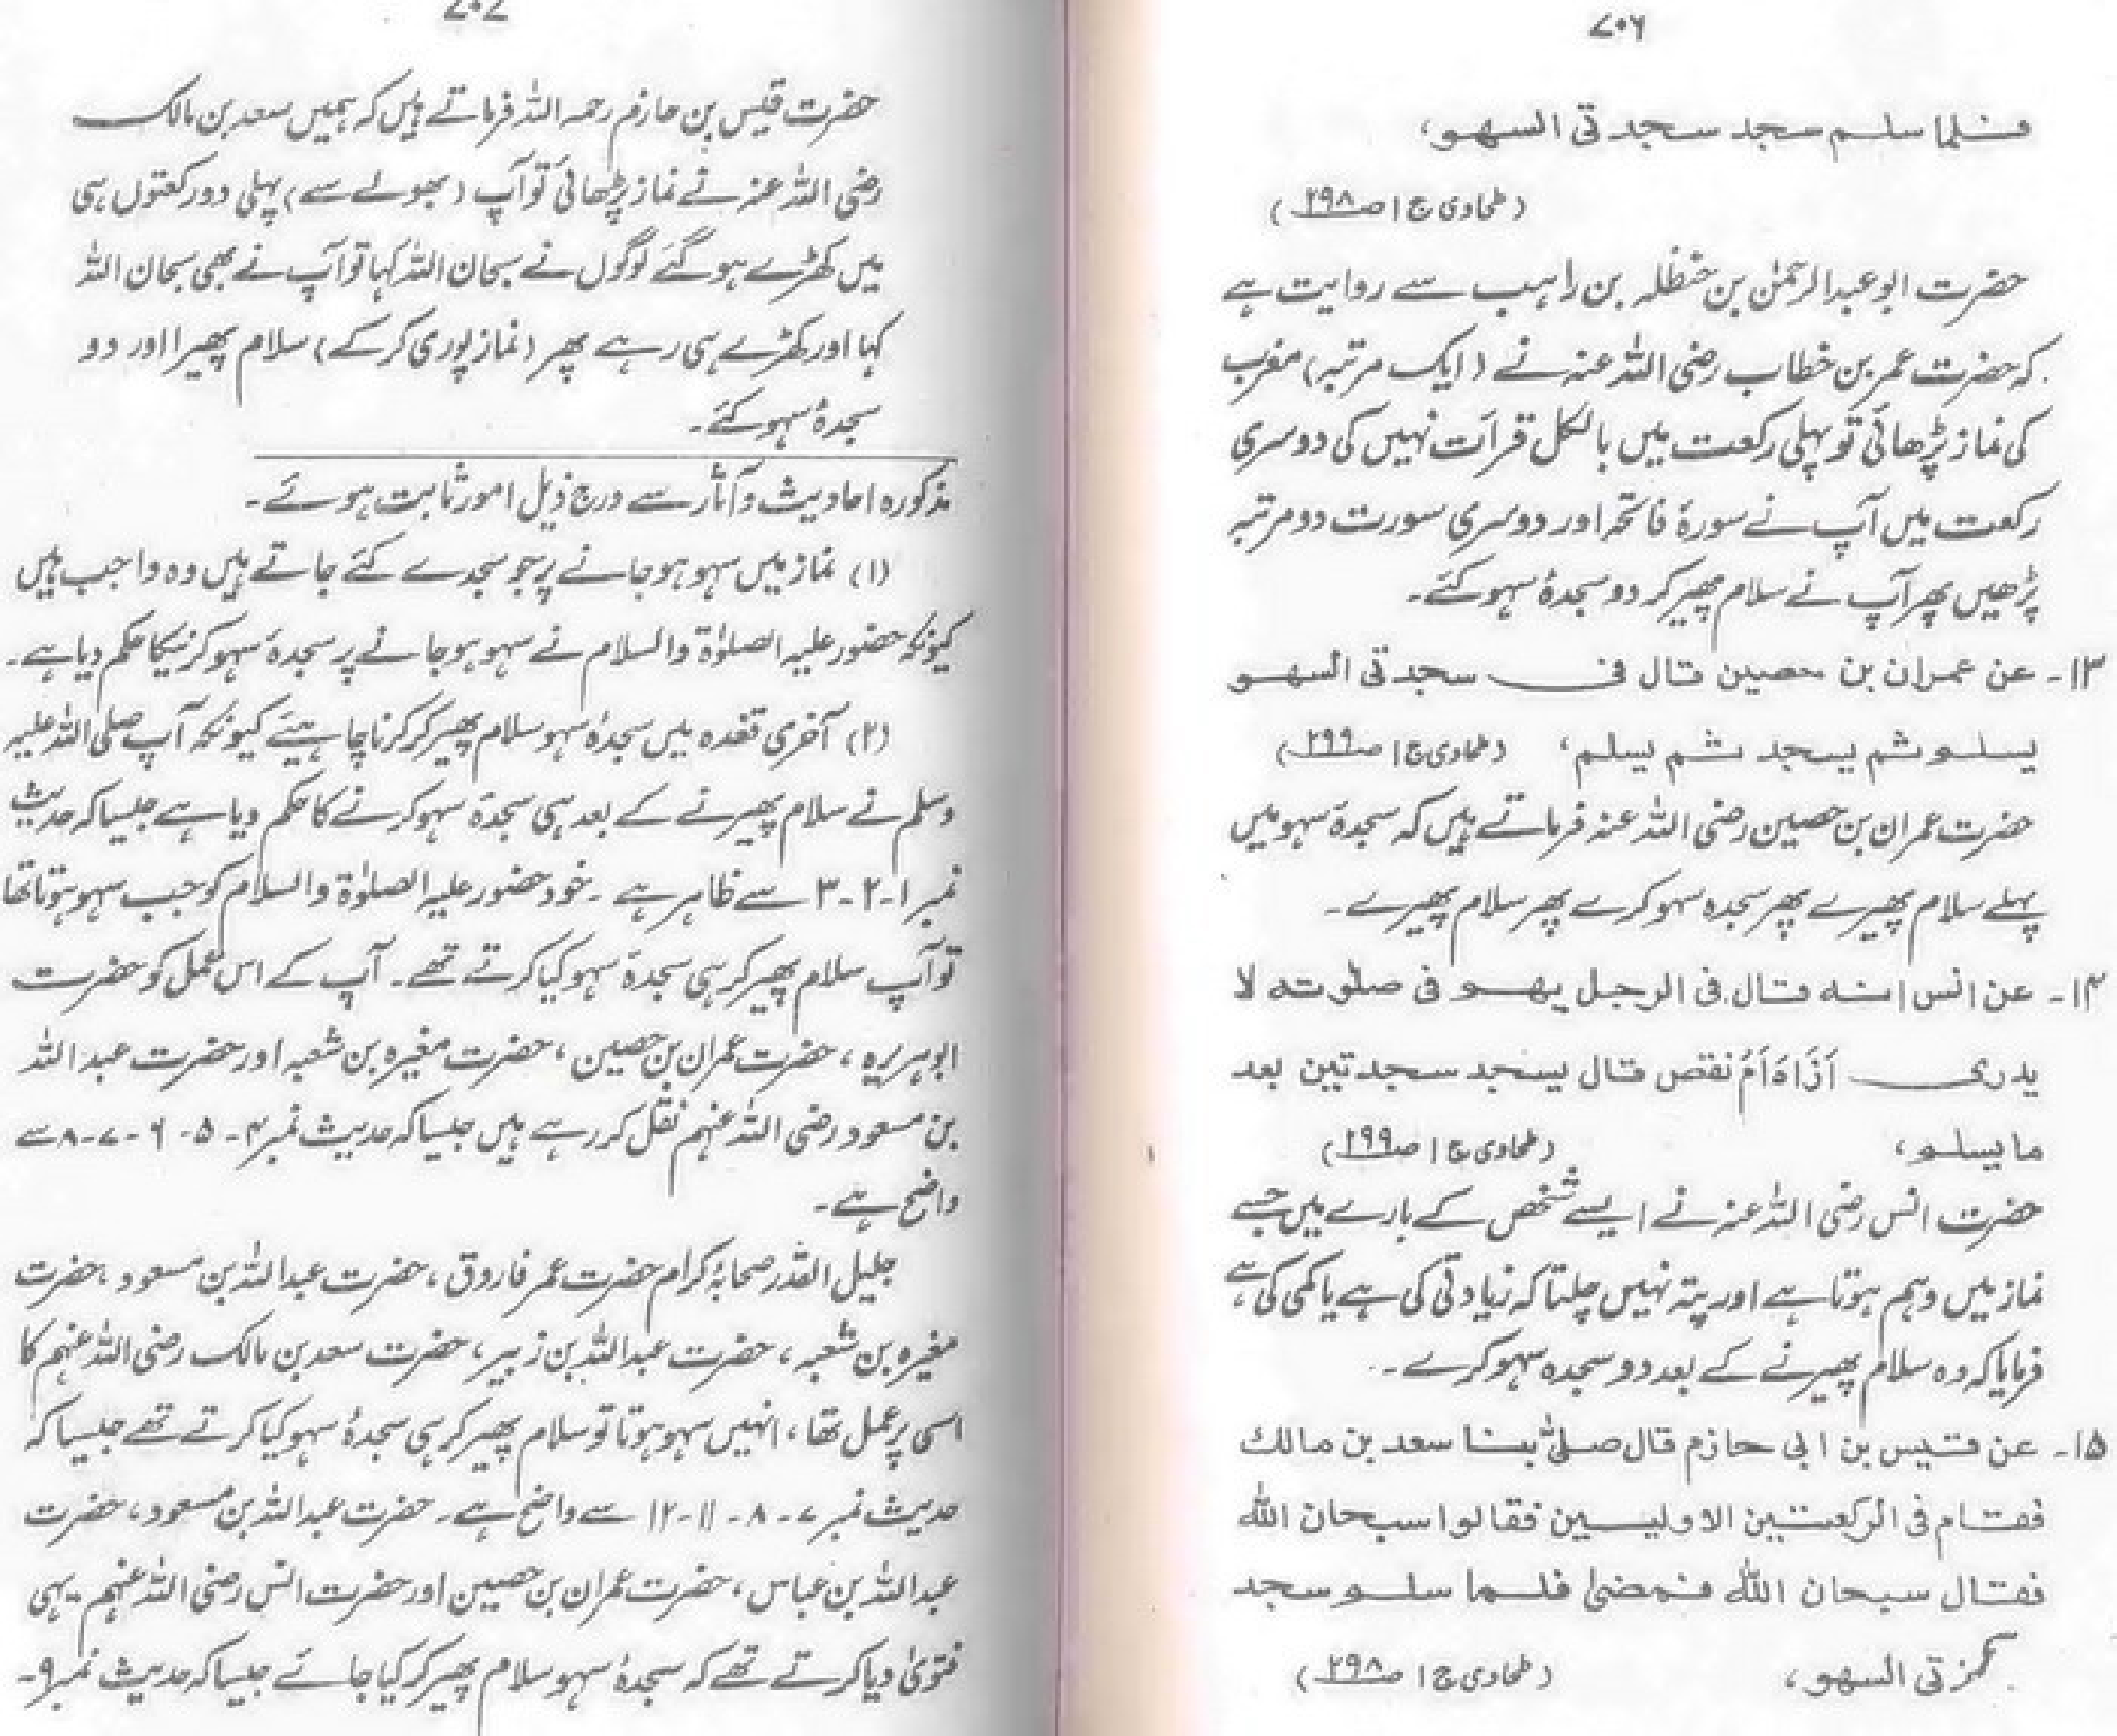 ۷۰۶
فلما سلم سجد سجدتی السهو،
(طحاوی ج ۱ ص ۲۹۸)
حضرت ابو عبدالرحمٰن بن حنظلہ بن راہب سے روایت ہے
کہ حضرت عمر بن خطاب رضی اللہ عنہ نے (ایک مرتبہ) مغرب
کی نماز پڑھائی تو پہلی رکعت میں بالکل قرأت نہیں کی دوسری
رکعت میں آپ نے سورۂ فاتحہ اور دوسری سورت دو مرتبہ
پڑھیں پھر آپ نے سلام پھیر کر دو سجدۂ سہو کئے۔
۱۳۔ عن عمران بن حصین قال فی سجدتی السهو
یسلم ثم یسجد ثم یسلم، (طحاوی ج ۱ ص ۲۹۹)
حضرت عمران بن حصین رضی اللہ عنہ فرماتے ہیں کہ سجدۂ سہو میں
پہلے سلام پھیرے پھر سجدہ سہو کرے پھر سلام پھیرے۔
۱۴۔ عن انس انه قال فی الرجل یهم فی صلوته لا
یدری اَزَادَ اَمْ نقص قال یسجد سجدتین بعد
ما یسلم، (طحاوی ج ۱ ص ۲۹۹)
حضرت انس رضی اللہ عنہ نے ایسے شخص کے بارے میں جسے
نماز میں وہم ہوتا ہے اور پتہ نہیں چلتا کہ زیادتی کی ہے یا کمی کی ہے
فرمایا کہ وہ سلام پھیرنے کے بعد دو سجدہ سہو کرے۔
۱۵۔ عن قیس بن ابی حازم قال صلی بنا سعد بن مالك
فقام فی الرکعتین الاولیین فقالوا سبحان اللّٰه
فقال سبحان اللّٰه فمضیٰ فلما سلم سجد
تی السهو، (طحاوی ج ۱ ص ۲۹۸)
۷۰۷
حضرت قیس بن حازم رحمہ اللہ فرماتے ہیں کہ ہمیں سعد بن مالک
رضی اللہ عنہ نے نماز پڑھائی تو آپ (بھولے سے) پہلی دو رکعتوں ہی
میں کھڑے ہو گئے لوگوں نے سبحان اللہ کہا تو آپ نے بھی سبحان اللہ
کہا اور کھڑے ہی رہے پھر (نماز پوری کر کے) سلام پھیرا اور دو
سجدۂ سہو کئے۔
مذکورہ احادیث و آثار سے درج ذیل امور ثابت ہوئے۔
(۱) نماز میں سہو ہو جانے پر جو سجدے کئے جاتے ہیں وہ واجب ہیں
کیونکہ حضور علیہ الصلوٰۃ والسلام نے سہو ہو جانے پر سجدۂ سہو کرنیکا حکم دیا ہے۔
(۲) آخری قعدہ میں سجدۂ سہو سلام پھیر کر کرنا چاہیئے کیونکہ آپ صلی اللہ علیہ
وسلم نے سلام پھیرنے کے بعد ہی سجدۂ سہو کرنے کا حکم دیا ہے جیسا کہ حدیث
نمبر ۱۔۲۔۳ سے ظاہر ہے۔ خود حضور علیہ الصلوٰۃ والسلام کو جب سہو ہوتا تھا
تو آپ سلام پھیر کر ہی سجدۂ سہو کیا کرتے تھے۔ آپ کے اس عمل کو حضرت
ابوہریرہ، حضرت عمران بن حصین، حضرت مغیرہ بن شعبہ اور حضرت عبداللہ
بن مسعود رضی اللہ عنہم نقل کر رہے ہیں جیسا کہ حدیث نمبر ۴۔۵۔۶۔۷۔۸ سے
واضح ہے۔
جلیل القدر صحابۂ کرام حضرت عمر فاروق، حضرت عبداللہ بن مسعود، حضرت
مغیرہ بن شعبہ، حضرت عبداللہ بن زبیر، حضرت سعد بن مالک رضی اللہ عنہم کا
اسی پر عمل تھا، انہیں سہو ہوتا تو سلام پھیر کر ہی سجدۂ سہو کیا کرتے تھے جیسا کہ
حدیث نمبر ۷۔۸۔۱۱۔۱۲ سے واضح ہے۔ حضرت عبداللہ بن مسعود، حضرت
عبداللہ بن عباس، حضرت عمران بن حصین اور حضرت انس رضی اللہ عنہم۔ یہی
فتویٰ دیا کرتے تھے کہ سجدۂ سہو سلام پھیر کر کیا جائے جیسا کہ حدیث نمبر ۹۔